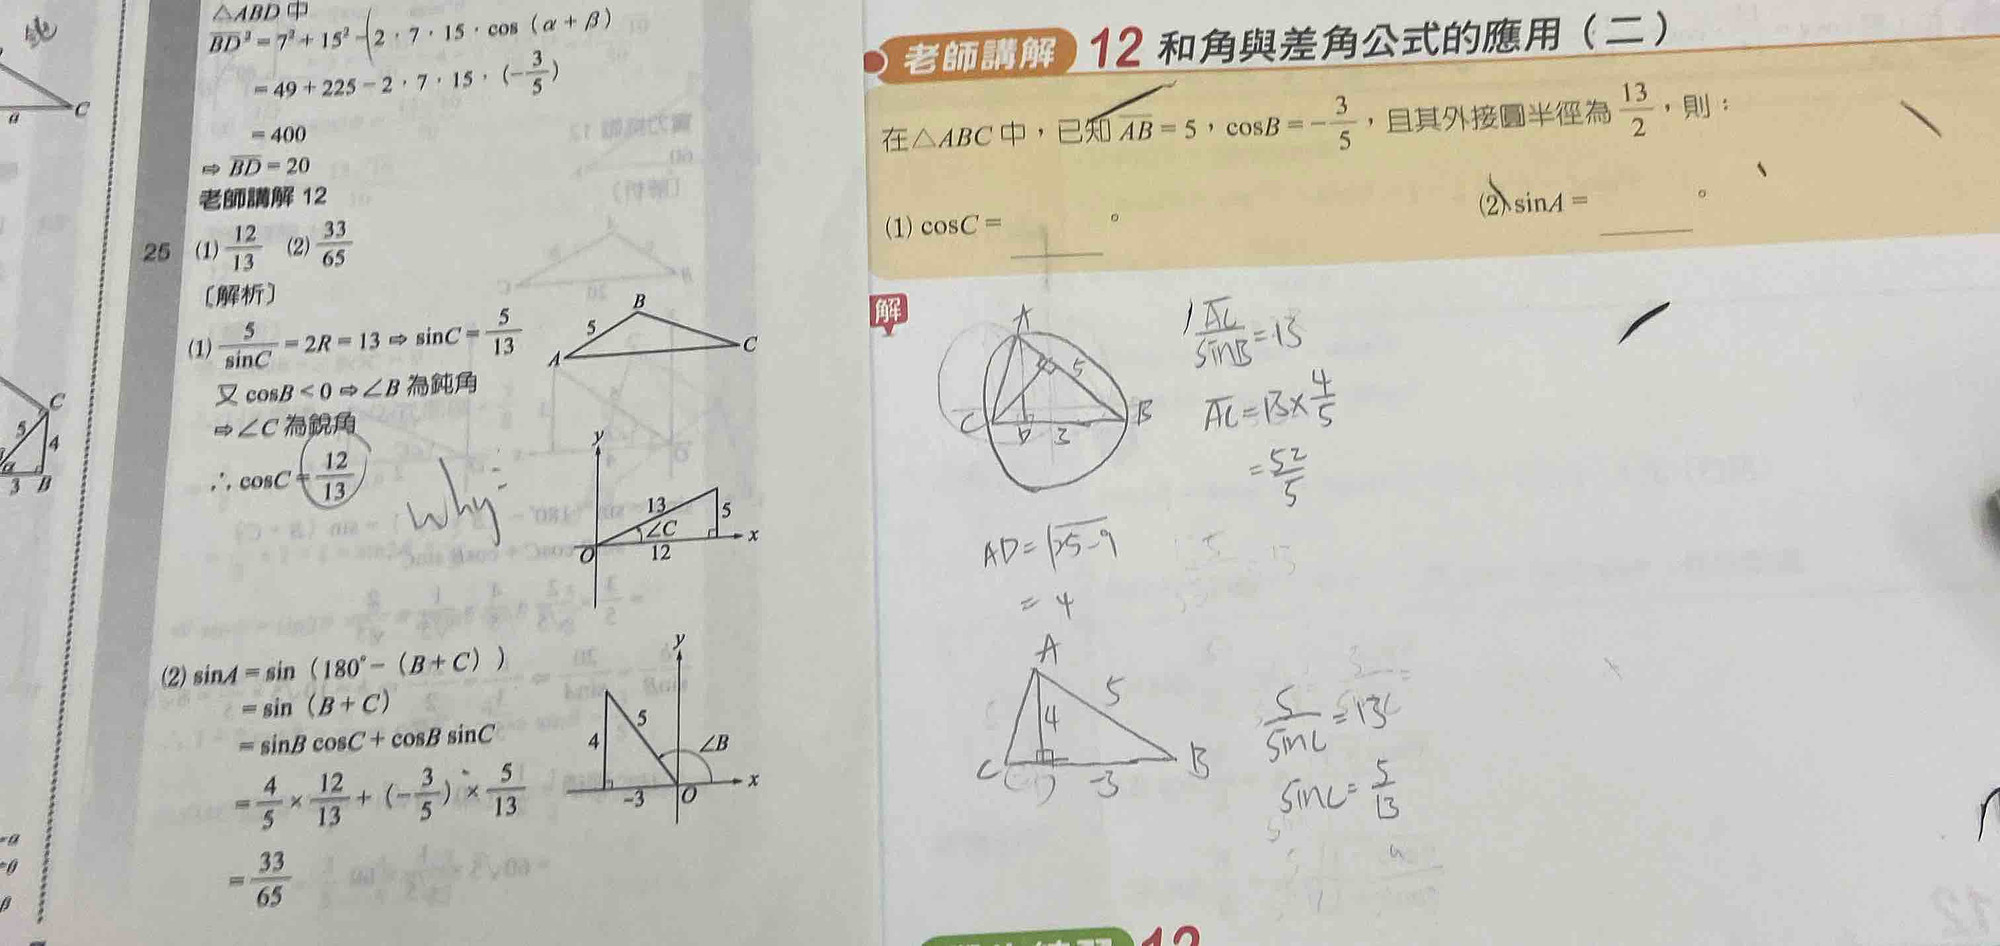 純
C
a
C
5
4
a
3 B
△ABD 中
BD² = 7² + 15² − 2 · 7 · 15 · cos（α + β）
= 49 + 225 − 2 · 7 · 15 · (−3/5)
= 400
⇒ BD = 20
老師講解 12
25 (1) 12/13 (2) 33/65
〔解析〕
(1) 5/sinC = 2R = 13 ⇒ sinC = 5/13
又 cosB < 0 ⇒ ∠B 為鈍角
⇒ ∠C 為銳角
∴ cosC = 12/13
why
B
5
A
C
y
13
5
∠C
O
12
x
(2) sinA = sin（180° −（B + C））
= sin（B + C）
= sinB cosC + cosB sinC
= 4/5 × 12/13 + (−3/5) × 5/13
= 33/65
y
5
4
∠B
x
−3
O
老師講解 12 和角與差角公式的應用（二）
在△ABC 中，已知 AB = 5，cosB = −3/5，且其外接圓半徑為 13/2，則：
(1) cosC = 。
(2) sinA = 。
解
A
5
C
D
3
B
AC/sinB = 13
AC = 13 × 4/5
= 52/5
AD = √25−9
= 4
A
5
4
C
−3
B
5/sinC = 13
sinC = 5/13
12